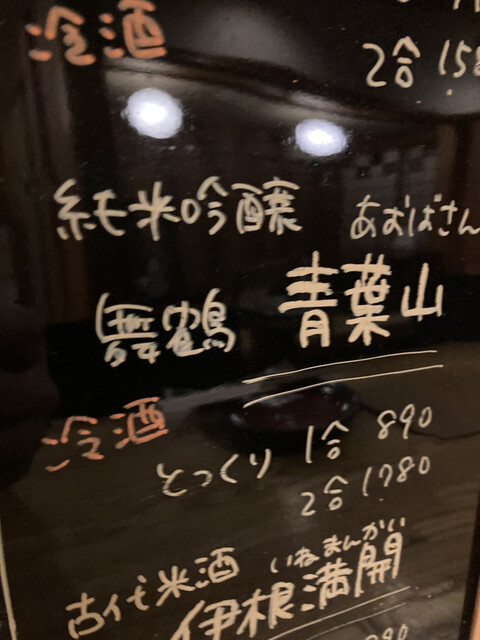 冷酒
2合 158
純米吟醸 あおばさん
舞鶴 青葉山
冷酒
とっくり 1合 890
2合 1,780
古代米酒 いねまんかい
伊根満開
890